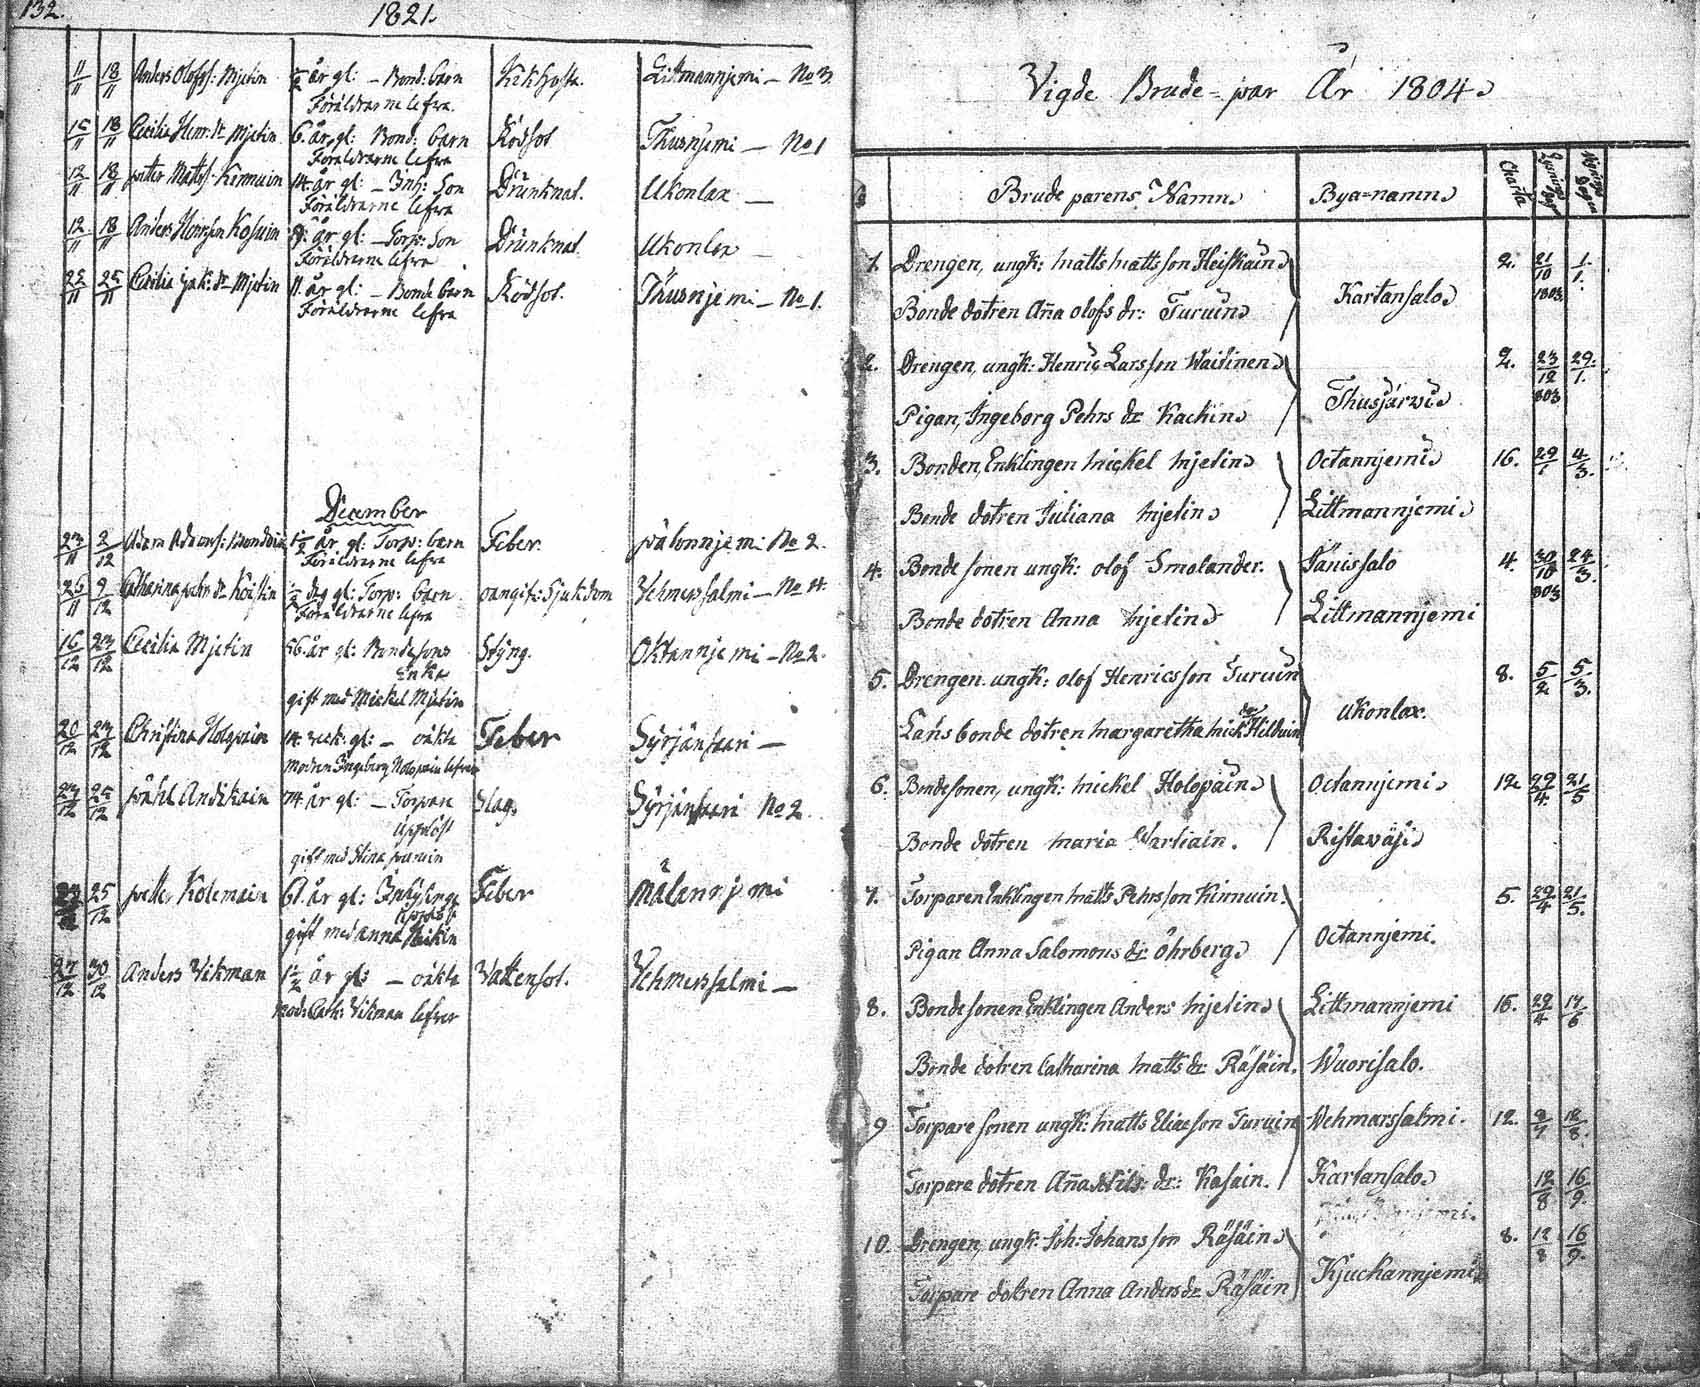 132.
1821.
11/11 18/11 Anders Olofss: Mjetin ½ år gl: – Bond: barn Kikhosta. Littmannjemi – No 3.
Föräldrarne lefva
15/11 18/11 Cecilia Henr: dr Mjetin 6. år gl: Bond: barn Rödsot Thusnjemi – No 1
Föräldrarne lefva
12/11 18/11 petter Mattss: Kinnuin 14. år gl: – Inh: Son Drunknat. Ukonlax –
Föräldrarne lefva
12/11 18/11 Anders Henrsson Kosuin år gl: – Torp: Son Drunknat. Ukonlax –
Föräldrarne lefva
22/11 25/11 Cecilia Jak: dr Mjetin 11. år gl: – Bonde barn Rödsot. Thusnjemi – No 1.
Föräldrarne lefva
December
23/11 2/12 Adam Adamss: 1½ år gl: Torp: barn Feber. pålonnjemi No 2.
Föräldrarne lefva
26/11 9/12 Catharina pehrs dr Kostin ½ dag gl: Torp: barn oangif: Sjukdom Vehmerssalmi – No 4.
Föräldrarne lefva
16/12 23/12 Cecilia Mjetin 56. år gl: Bondesons Styng. Oktannjemi – No 2.
Enka
gift med Mickel Mjetin
20/12 23/12 Christina Holopain 14. veck: gl: – oäkta Feber Syrjänsaari –
Modren Ingeborg Holopain lefver
25/12 påhl Andikain 74. år gl: – Torpare Slag. Syrjänsaari No 2.
Uppläst
gift med Stina
25/12 petter Kolemain 61. år gl: Inhysinge Feber Målannjemi
Uppläst
gift med Anna
27/12 30/12 Anders Vikman 1½ år gl: – oäkta Vattensot. Vehmerssalmi –
Mod: Cath: Vikman lefver
Vigde Brude-par År 1804.
Brude parens Namn. Bya-namn. Charta Lysnings dagar Vignings dagen
1. Drengen, ungk: Matts Mattsson Heiskain 2. 21/10 1803 1/1.
Kartansalo.
Bonde dotren Aña Olofs dr: Turuin
2. Drengen, ungk: Henric Larsson Waitinen 2. 23/12 803 29/1.
Thusjärwi.
Pigan, Ingeborg Pehrs dr Kackin
3. Bonden, Enklingen Mickel Mjetin Octannjemi 16. 29/1 4/3.
Bonde dotren Juliana Mjetin Littmannjemi
4. Bonde sonen ungk: Olof Smolander. Jänissalo 4. 30/10 803 24/3.
Bonde dotren Anna Mjetin Littmannjemi
5. Drengen ungk: Olof Henricsson Turuin 8. 5/2 5/3.
Ukonlax.
Lańsbonde dotren Margaretha Mick: dr Hiltuin
6. Bondesonen, ungk: Mickel Holopain Octannjemi. 12 22/4 21/5
Bonde dotren Maria Wartiain. Ristawäsi
7. Torparen Enklingen Matts Pehrsson Kinnuin. 5. 22/4 21/5.
Octannjemi.
Pigan Anna Salomons dr Öhrberg
8. Bondesonen Enklingen Anders Mjetin Littmannjemi 16. 22/4 17/6
Bonde dotren Catharina Matts dr Räsäin. Wuorisalo.
9 Torpare sonen ungk: Matts Eliasson Turuin Wehmarssalmi. 12. 8/7 12/8.
Torpare dotren Aña Nils: dr: Kosain. Kartansalo. 12/8 16/9.
10. Drengen, ungk: Joh: Johansson Räsäin 8. 12/8 16/9.
Kjuckannjemi
Torpare dotren Anna Anders dr Räsäin